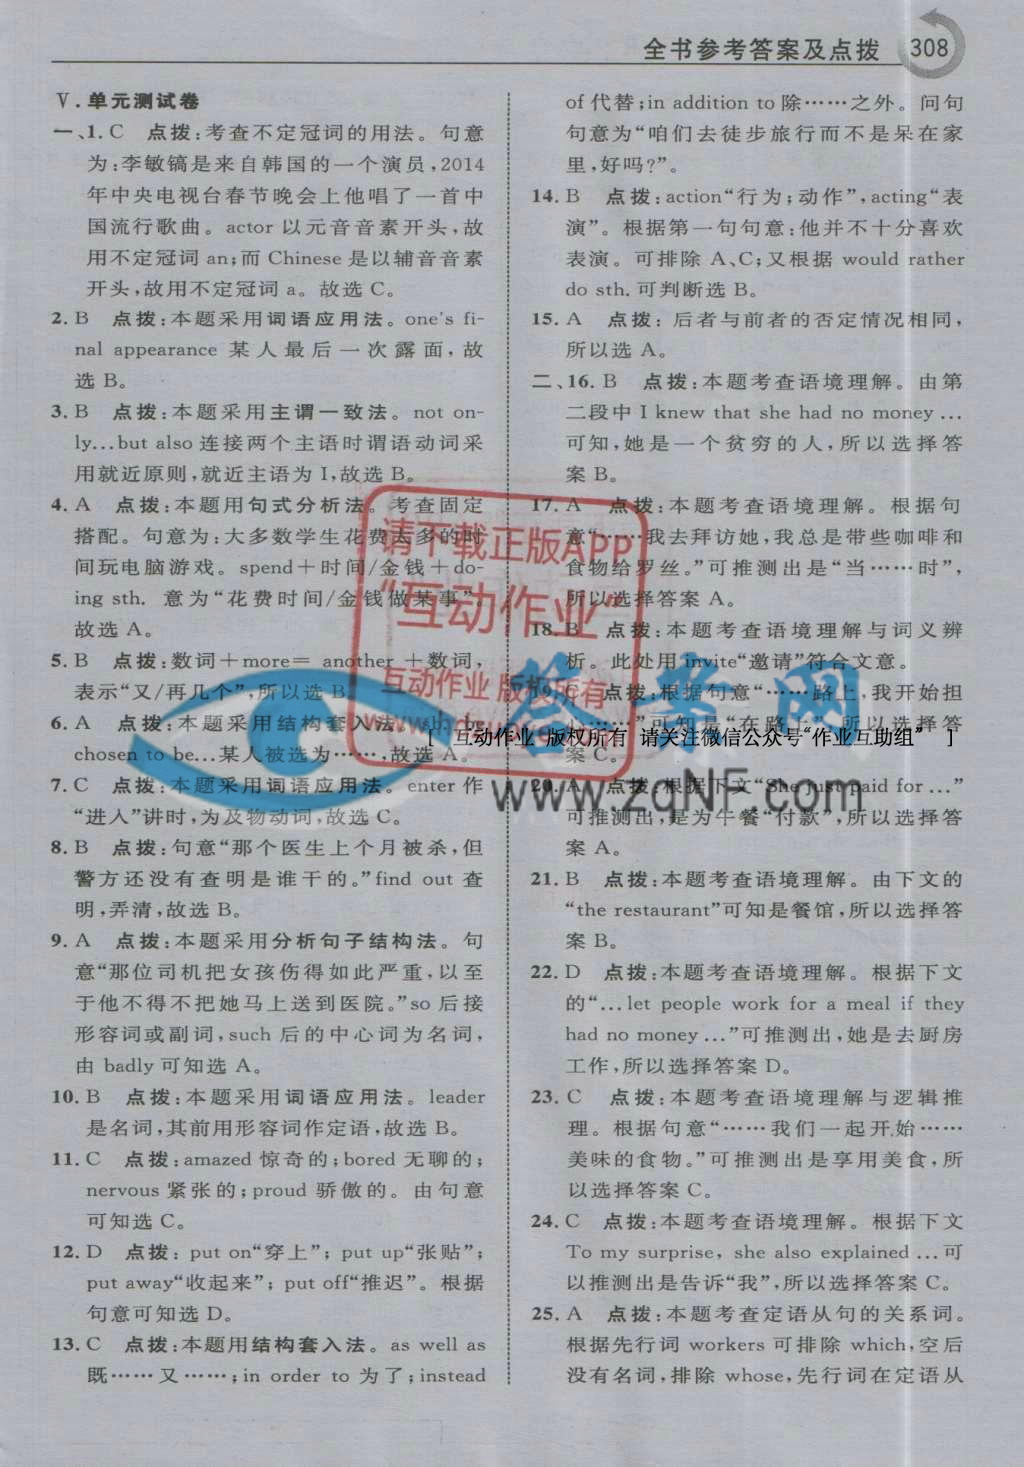 全书参考答案及点拨 308
Ⅴ.单元测试卷
一、1. C 点拨:考查不定冠词的用法。句意
为:李敏镐是来自韩国的一个演员,2014
年中央电视台春节晚会上他唱了一首中
国流行歌曲。actor 以元音音素开头,故
用不定冠词 an;而 Chinese 是以辅音音素
开头,故用不定冠词 a。故选 C。
2. B 点拨:本题采用词语应用法。one's fi-
nal appearance 某人最后一次露面,故
选 B。
3. B 点拨:本题采用主谓一致法。not on-
ly...but also 连接两个主语时谓语动词采
用就近原则,就近主语为 I,故选 B。
4. A 点拨:本题用句式分析法。考查固定
搭配。句意为:大多数学生花费太多的时
间玩电脑游戏。spend+时间/金钱+do-
ing sth. 意为“花费时间/金钱做某事”。
故选 A。
5. B 点拨:数词+more= another +数词,
表示“又/再几个”,所以选 B。
6. A 点拨:本题采用结构套入法。sb. be
chosen to be...某人被选为……,故选 A。
7. C 点拨:本题采用词语应用法。enter 作
“进入”讲时,为及物动词,故选 C。
8. B 点拨:句意“那个医生上个月被杀,但
警方还没有查明是谁干的。”find out 查
明,弄清,故选 B。
9. A 点拨:本题采用分析句子结构法。句
意“那位司机把女孩伤得如此严重,以至
于他不得不把她马上送到医院。”so 后接
形容词或副词,such 后的中心词为名词,
由 badly 可知选 A。
10. B 点拨:本题采用词语应用法。leader
是名词,其前用形容词作定语,故选 B。
11. C 点拨:amazed 惊奇的;bored 无聊的;
nervous 紧张的;proud 骄傲的。由句意
可知选 C。
12. D 点拨: put on“穿上”; put up“张贴”;
put away“收起来”; put off“推迟”。根据
句意可知选 D。
13. C 点拨:本题用结构套入法。as well as
既……又……;in order to 为了;instead
of 代替;in addition to 除……之外。问句
句意为“咱们去徒步旅行而不是呆在家
里,好吗?”。
14. B 点拨:action“行为;动作”,acting“表
演”。根据第一句句意:他并不十分喜欢
表演。可排除 A、C;又根据 would rather
do sth.可判断选 B。
15. A 点拨: 后者与前者的否定情况相同,
所以选 A。
二、16. B 点拨:本题考查语境理解。由第
二段中 I knew that she had no money ...
可知,她是一个贫穷的人,所以选择答
案 B。
17. A 点拨:本题考查语境理解。根据句
意“……我去拜访她,我总是带些咖啡和
食物给罗丝。”可推测出是“当……时”,
所以选择答案 A。
18. B 点拨:本题考查语境理解与词义辨
析。此处用 invite“邀请”符合文意。
19. C 点拨:根据句意“……路上,我开始担
心……”可知是“在路上”,所以选择答
案 C。
20. A 点拨:根据下文“She just paid for ...”
可推测出,是为午餐“付款”,所以选择答
案 A。
21. B 点拨:本题考查语境理解。由下文的
“the restaurant”可知是餐馆,所以选择答
案 B。
22. D 点拨:本题考查语境理解。根据下文
的“...let people work for a meal if they
had no money ...”可推测出,她是去厨房
工作,所以选择答案 D。
23. C 点拨:本题考查语境理解与逻辑推
理。根据句意“……我们一起开始……
美味的食物。”可推测出是享用美食,所
以选择答案 C。
24. C 点拨:本题考查语境理解。根据下文
To my surprise, she also explained ...可
以推测出是告诉“我”,所以选择答案 C。
25. A 点拨:本题考查定语从句的关系词。
根据先行词 workers 可排除 which,空后
没有名词,排除 whose,先行词在定语从
请下载正版APP
“互动作业”
互动作业 版权所有
[ 互动作业 版权所有 请关注微信公众号“作业互助组” ]
答案网
www.zqNF.com